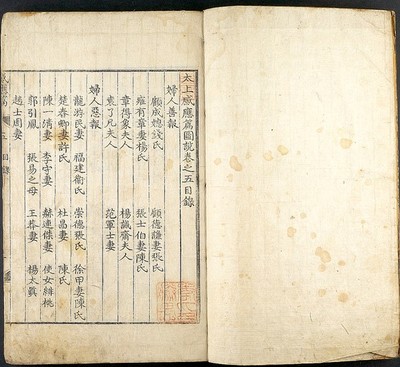 太上感應篇圖說卷之五目錄
婦人善報
顧成媳錢氏 顧德謙妻張氏
雍有章妻楊氏 張士伯妻陳氏
章得象夫人 楊誠齋夫人
袁了凡夫人 范軍士妻
婦人惡報
龍游民妻 福建衛氏 崇德張氏 徐甲妻陳氏
楚春卿妻許氏 杜昌妻 陳氏
陳一清妻 李守妻 赫連傑妻 使女緋桃
郭引鳳 張易之母 王莽妻 楊太眞
趙士周妻